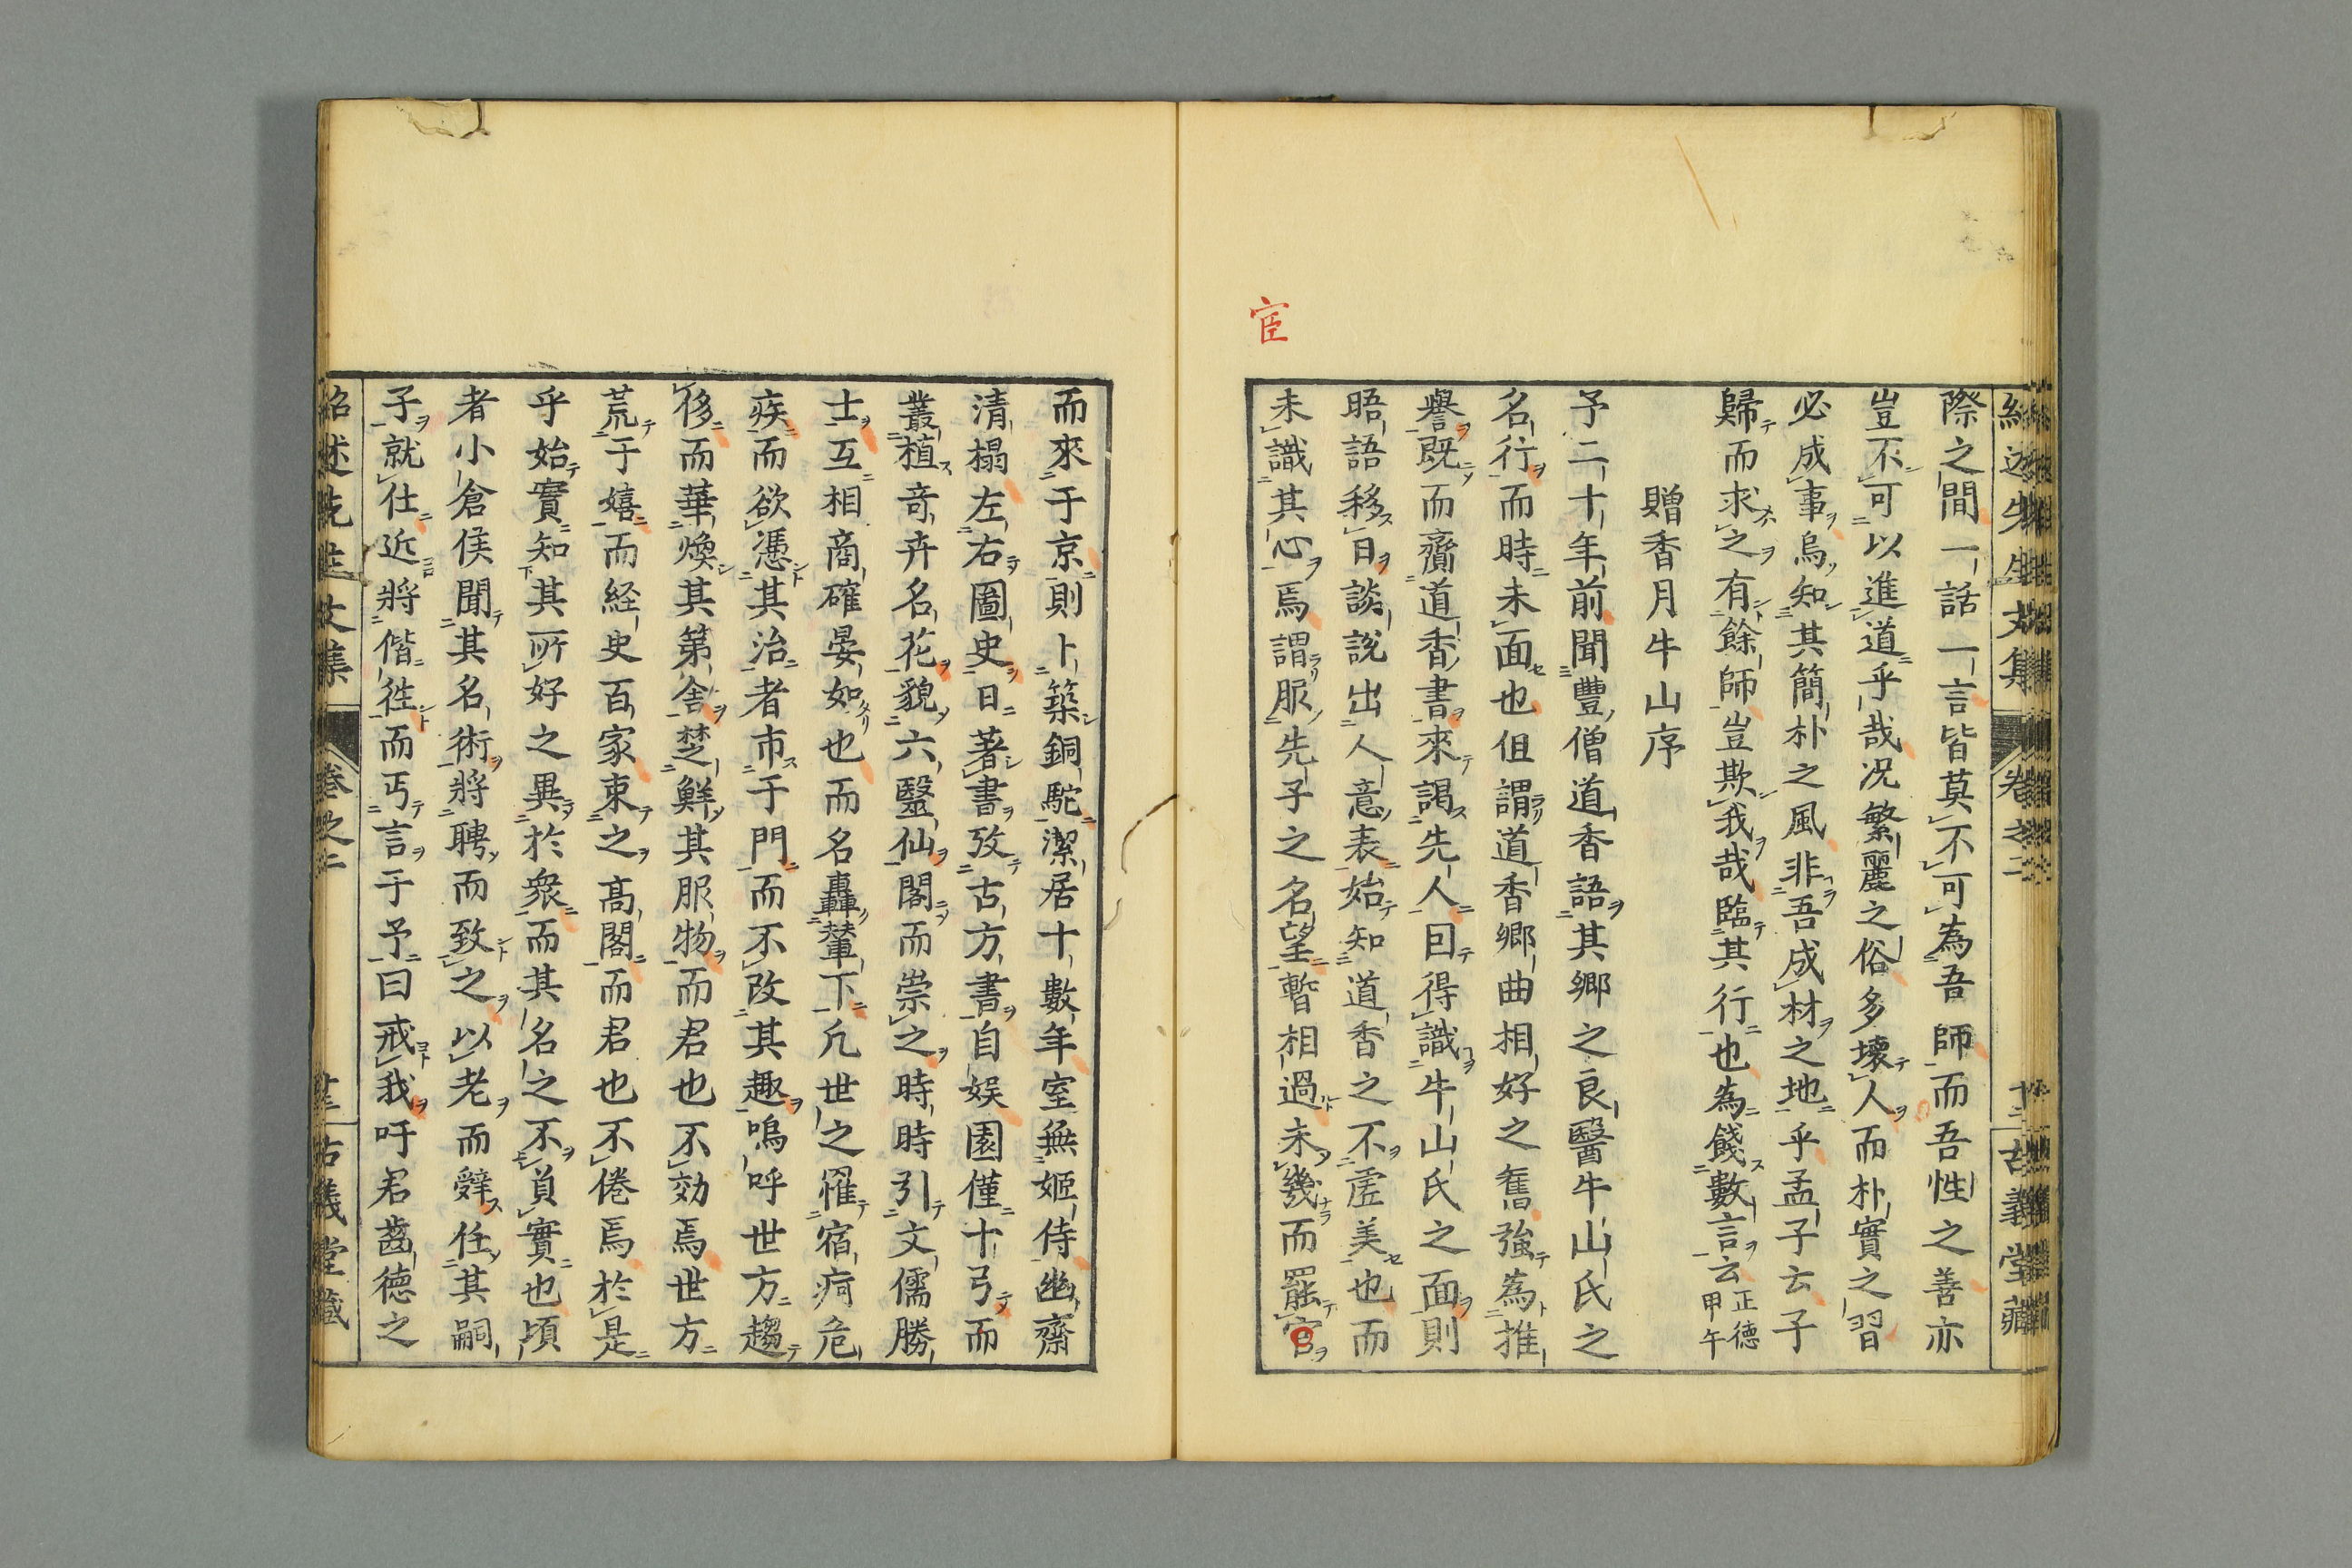 際之間一話一言皆莫不可為吾師而吾性之善亦
豈不可以進道乎哉况繁麗之俗多壞人而朴實之習
必成事烏知其簡朴之風非吾成材之地乎孟子云子
歸而求之有餘師豈欺我哉臨其行也為餞數言云正德甲午
贈香月牛山序
予二十年前聞豐僧道香語其鄉之良醫牛山氏之
名行而時未面也但謂道香鄉曲相好之舊強為推
譽既而齎道香書來謁先人因得識牛山氏之面則
晤語移日談說出人意表始知道香之不虛美也而
未識其心焉謂服先子之名望暫相過未幾而罷官
宦
而來于京則卜築銅駝潔居十數年室無姬侍幽齋
清榻左右圖史日著書攷古方書自娯園僅十弓而
叢植奇卉名花貌六醫仙閣而崇之時時引文儒勝
士互相商確晏如也而名轟輦下凡世之罹宿痾危
疾而欲憑其治者市于門而不改其趣嗚呼世方趨
侈而華煥其第舍楚鮮其服物而君也不効焉世方
荒于嬉而経史百家束之髙閣而君也不倦焉於是
乎始實知其所好之異於衆而其名之不負實也頃
者小倉侯聞其名術將聘而致之以老而辭任其嗣
子就仕近將偕徃而丐言于予曰戒我吁君齒德之
紹述先生文集 卷之二 古義堂藏